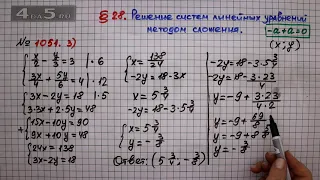 4 а 5
§ 28. Решение систем линейных уравнений
методом сложения.
-a+a=0
(x; y)
№ 1051. 3)
x/2 - y/3 = 3 | · 6
3x/4 + 5y/6 = 4 | · 12
3x - 2y = 18 | · 5
3·3x + 2·5y = 48
+ 15x - 10y = 90
9x + 10y = 48
24x = 138
3x - 2y = 18
x = 138/24
-2y = 18 - 3x
x = 5 3/4
-2y = 18 - 3·5 3/4
x = 5 3/4
y = - 3/8
Ответ: (5 3/4; - 3/8)
-2y = 18 - 3·5 3/4
-2y = 18 - 3·23/4
y = -9 + 3·23/4·2
y = -9 + 69/8
y = -9 + 8 5/8
y = - 3/8